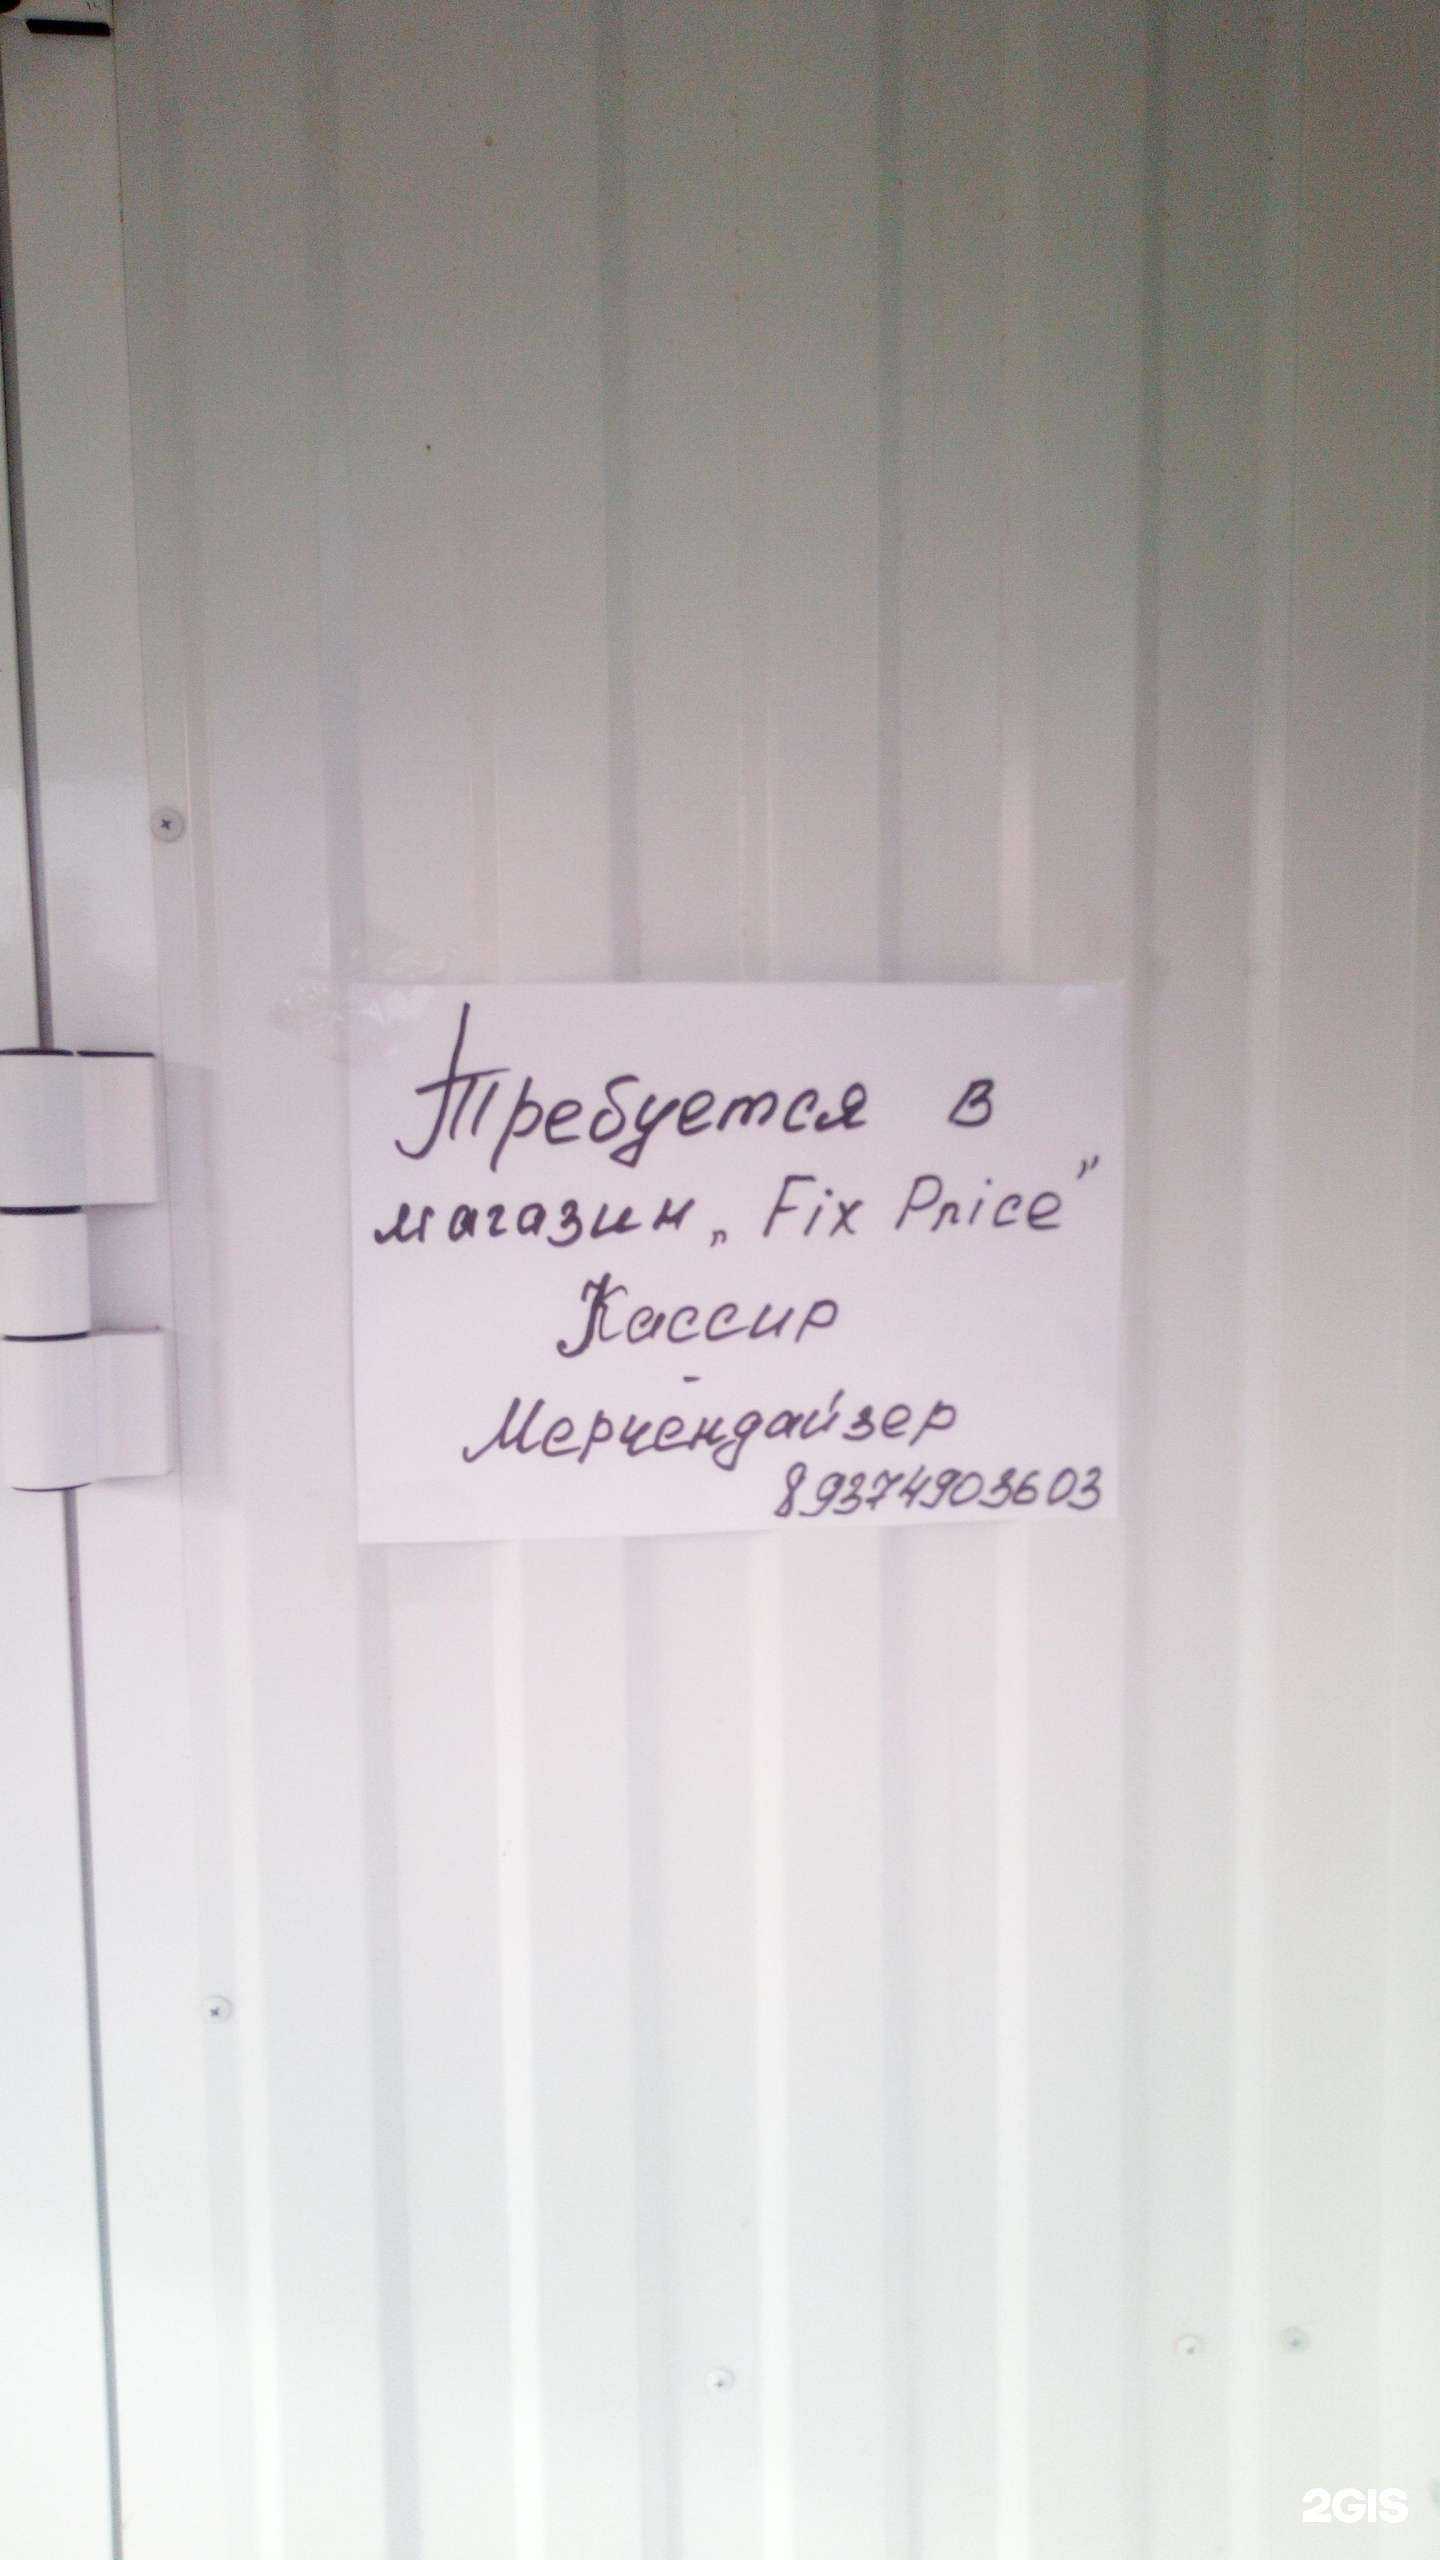 Требуется в
магазин „Fix Price”
Кассир
-
Мерчендайзер
89374903603
2GIS